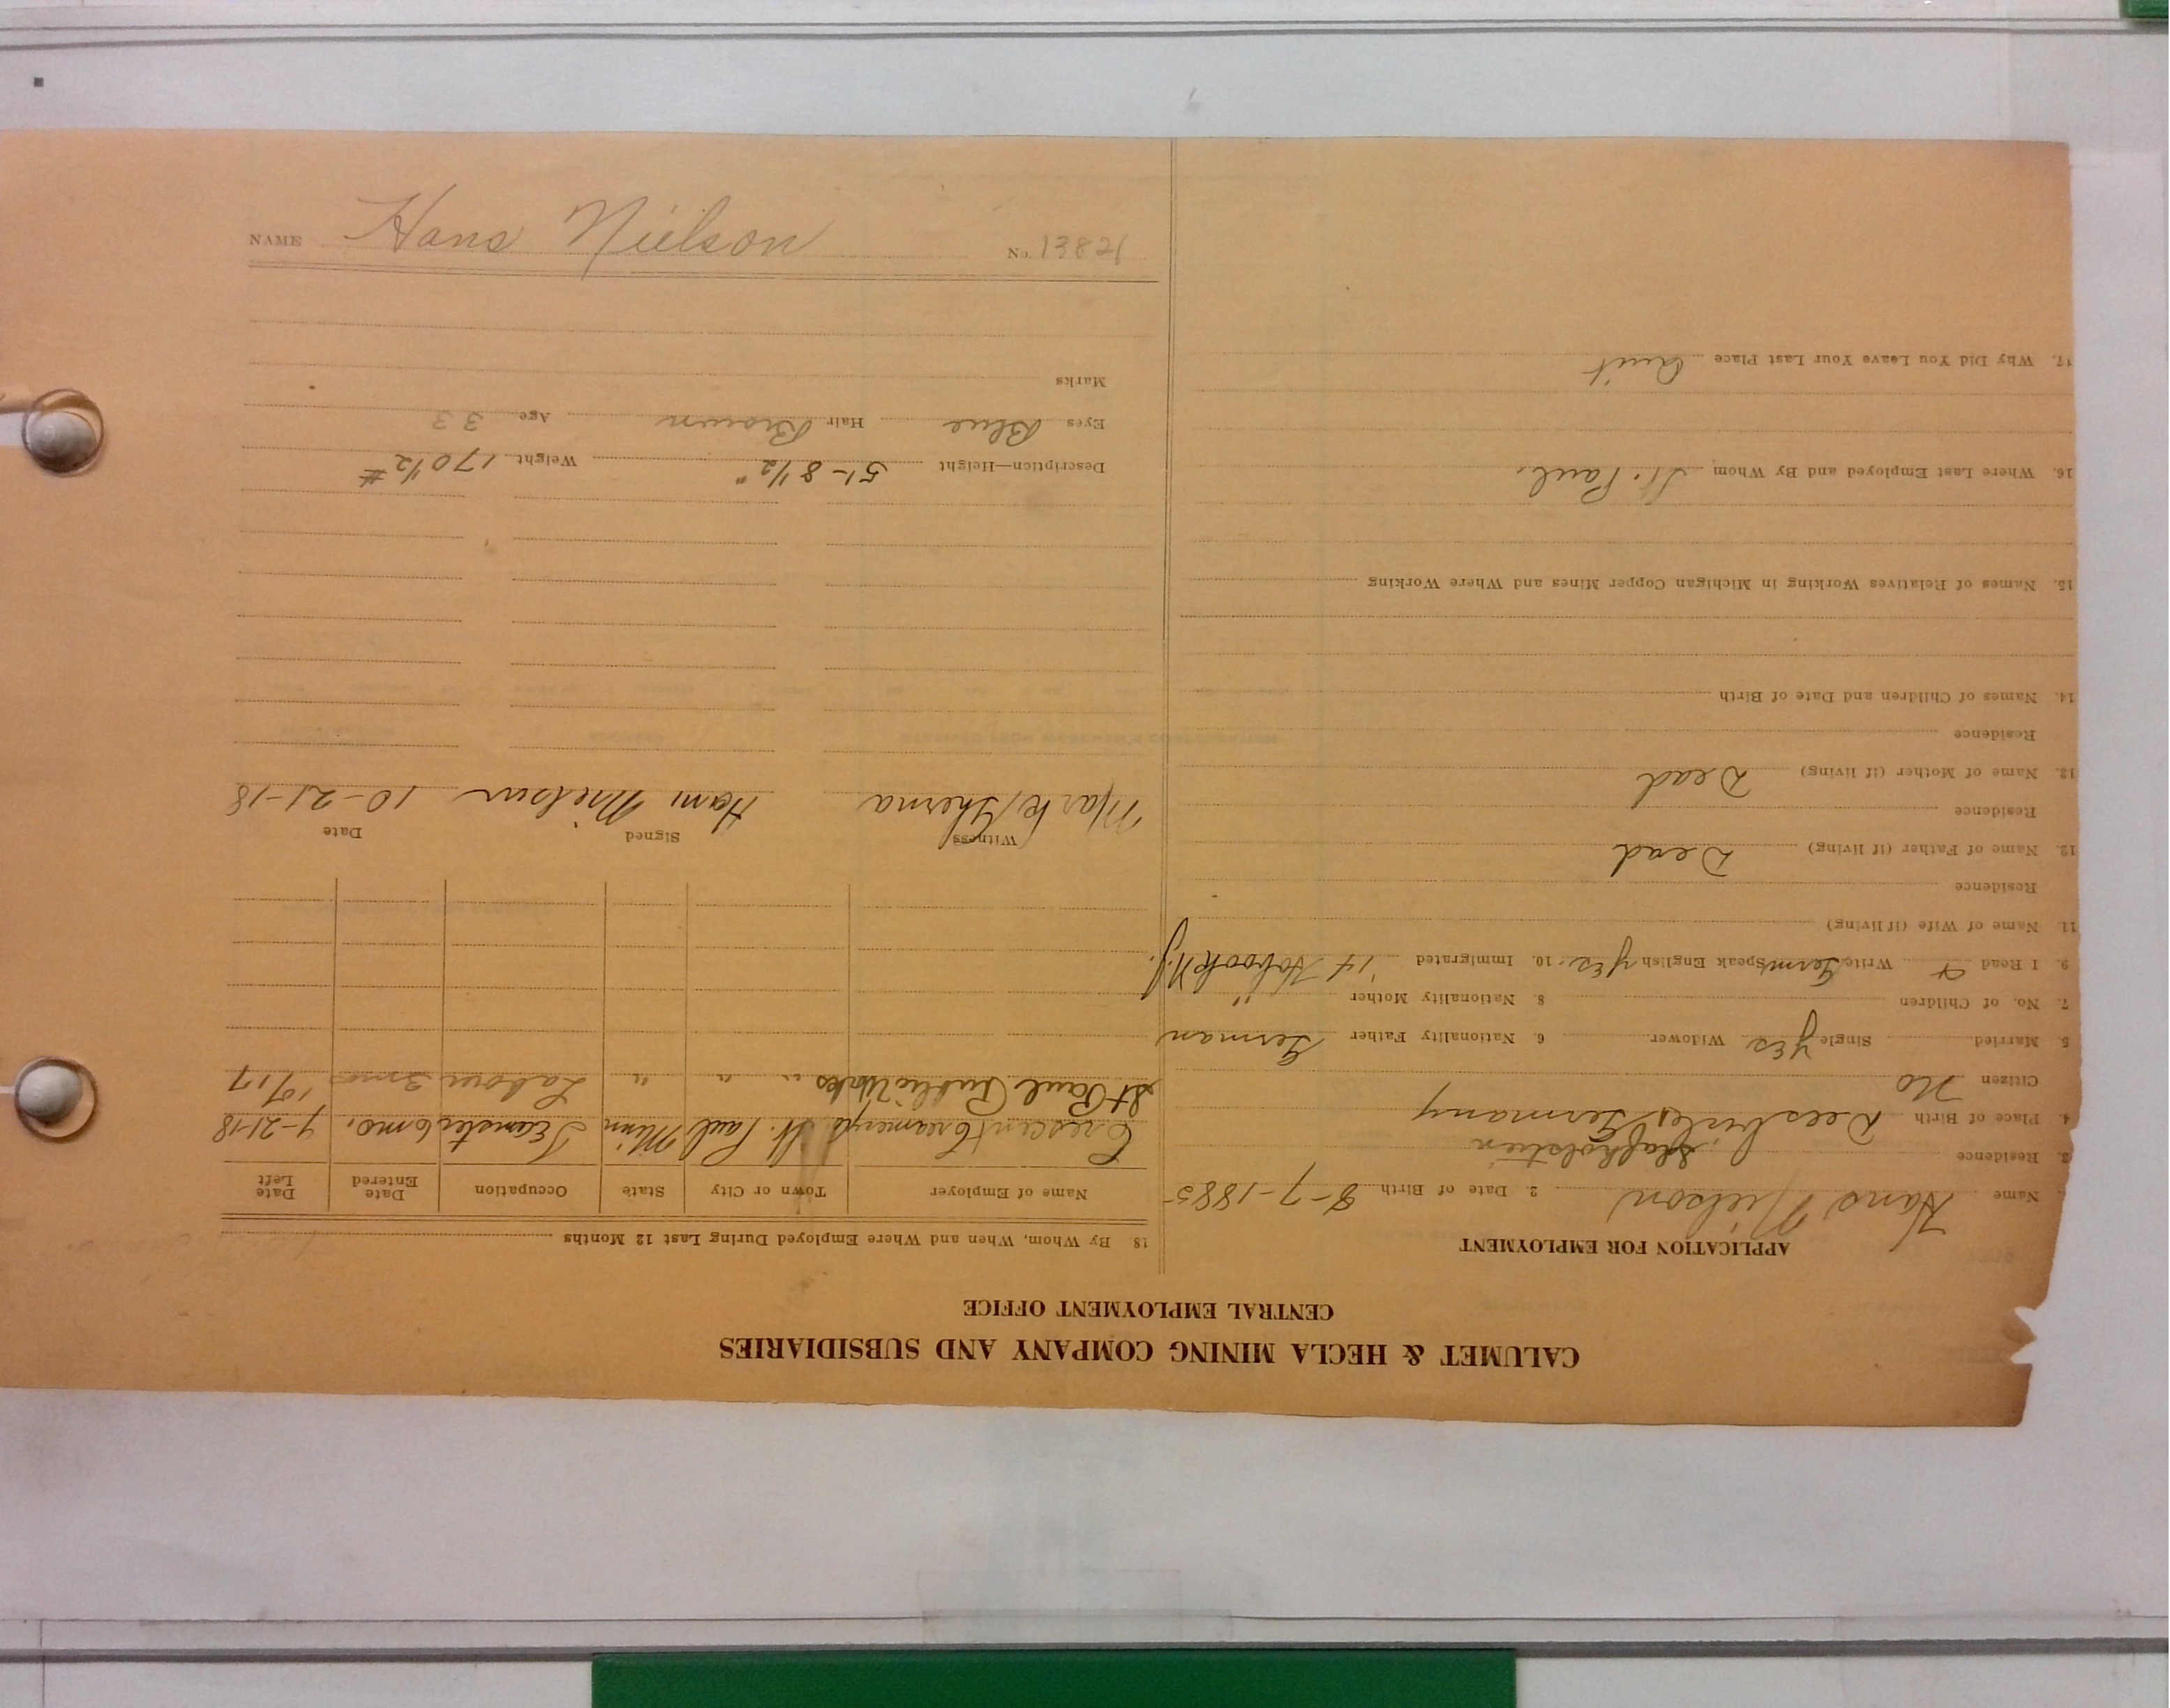 CALUMET & HECLA MINING COMPANY AND SUBSIDIARIES
CENTRAL EMPLOYMENT OFFICE
APPLICATION FOR EMPLOYMENT
Name Hans Nielson 2. Date of Birth 8-7-1885
3. Residence
4. Place of Birth Germany
Citizen No
5. Married Single Yes Widower 6. Nationality Father German
7. No. of Children 8. Nationality Mother "
9. I Read & Write Germ Speak English Yes. 10. Immigrated '14 N.J.
11. Name of Wife (if living)
Residence
12. Name of Father (if living) Dead
Residence
13. Name of Mother (if living) Dead
Residence
14. Names of Children and Date of Birth
15. Names of Relatives Working in Michigan Copper Mines and Where Working
16. Where Last Employed and By Whom St. Paul.
17. Why Did You Leave Your Last Place Quit
18 By Whom, When and Where Employed During Last 12 Months
Name of Employer Town or City State Occupation Date Entered Date Left
Crescent Creamery St. Paul Minn Teamster 6 mo. 9-21-18
St Paul Public Works " " " Labour 3 mo 10/17
Witness Signed Date
Hans Nielsen 10-21-18
Description—Height 5'-8 1/2" Weight 170 1/2 #
Eyes Blue Hair Brown Age 33
Marks
NAME Hans Nielson No. 13821